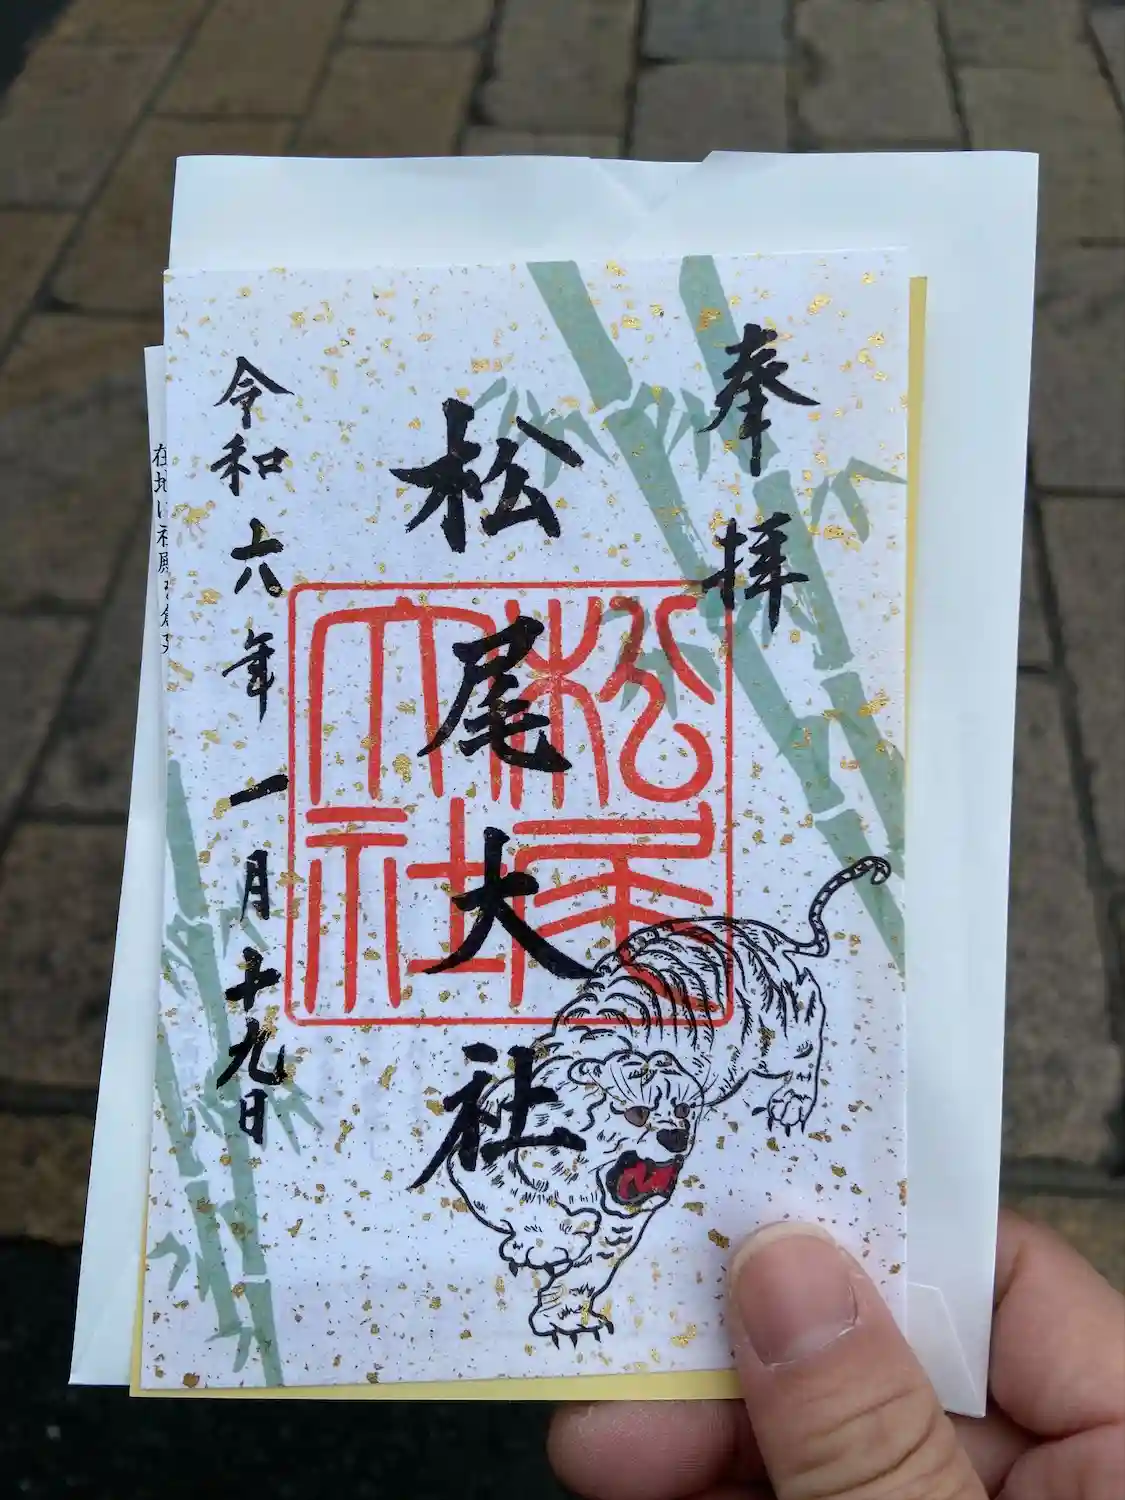 奉拝
松尾大社
松尾大社
令和六年一月十九日